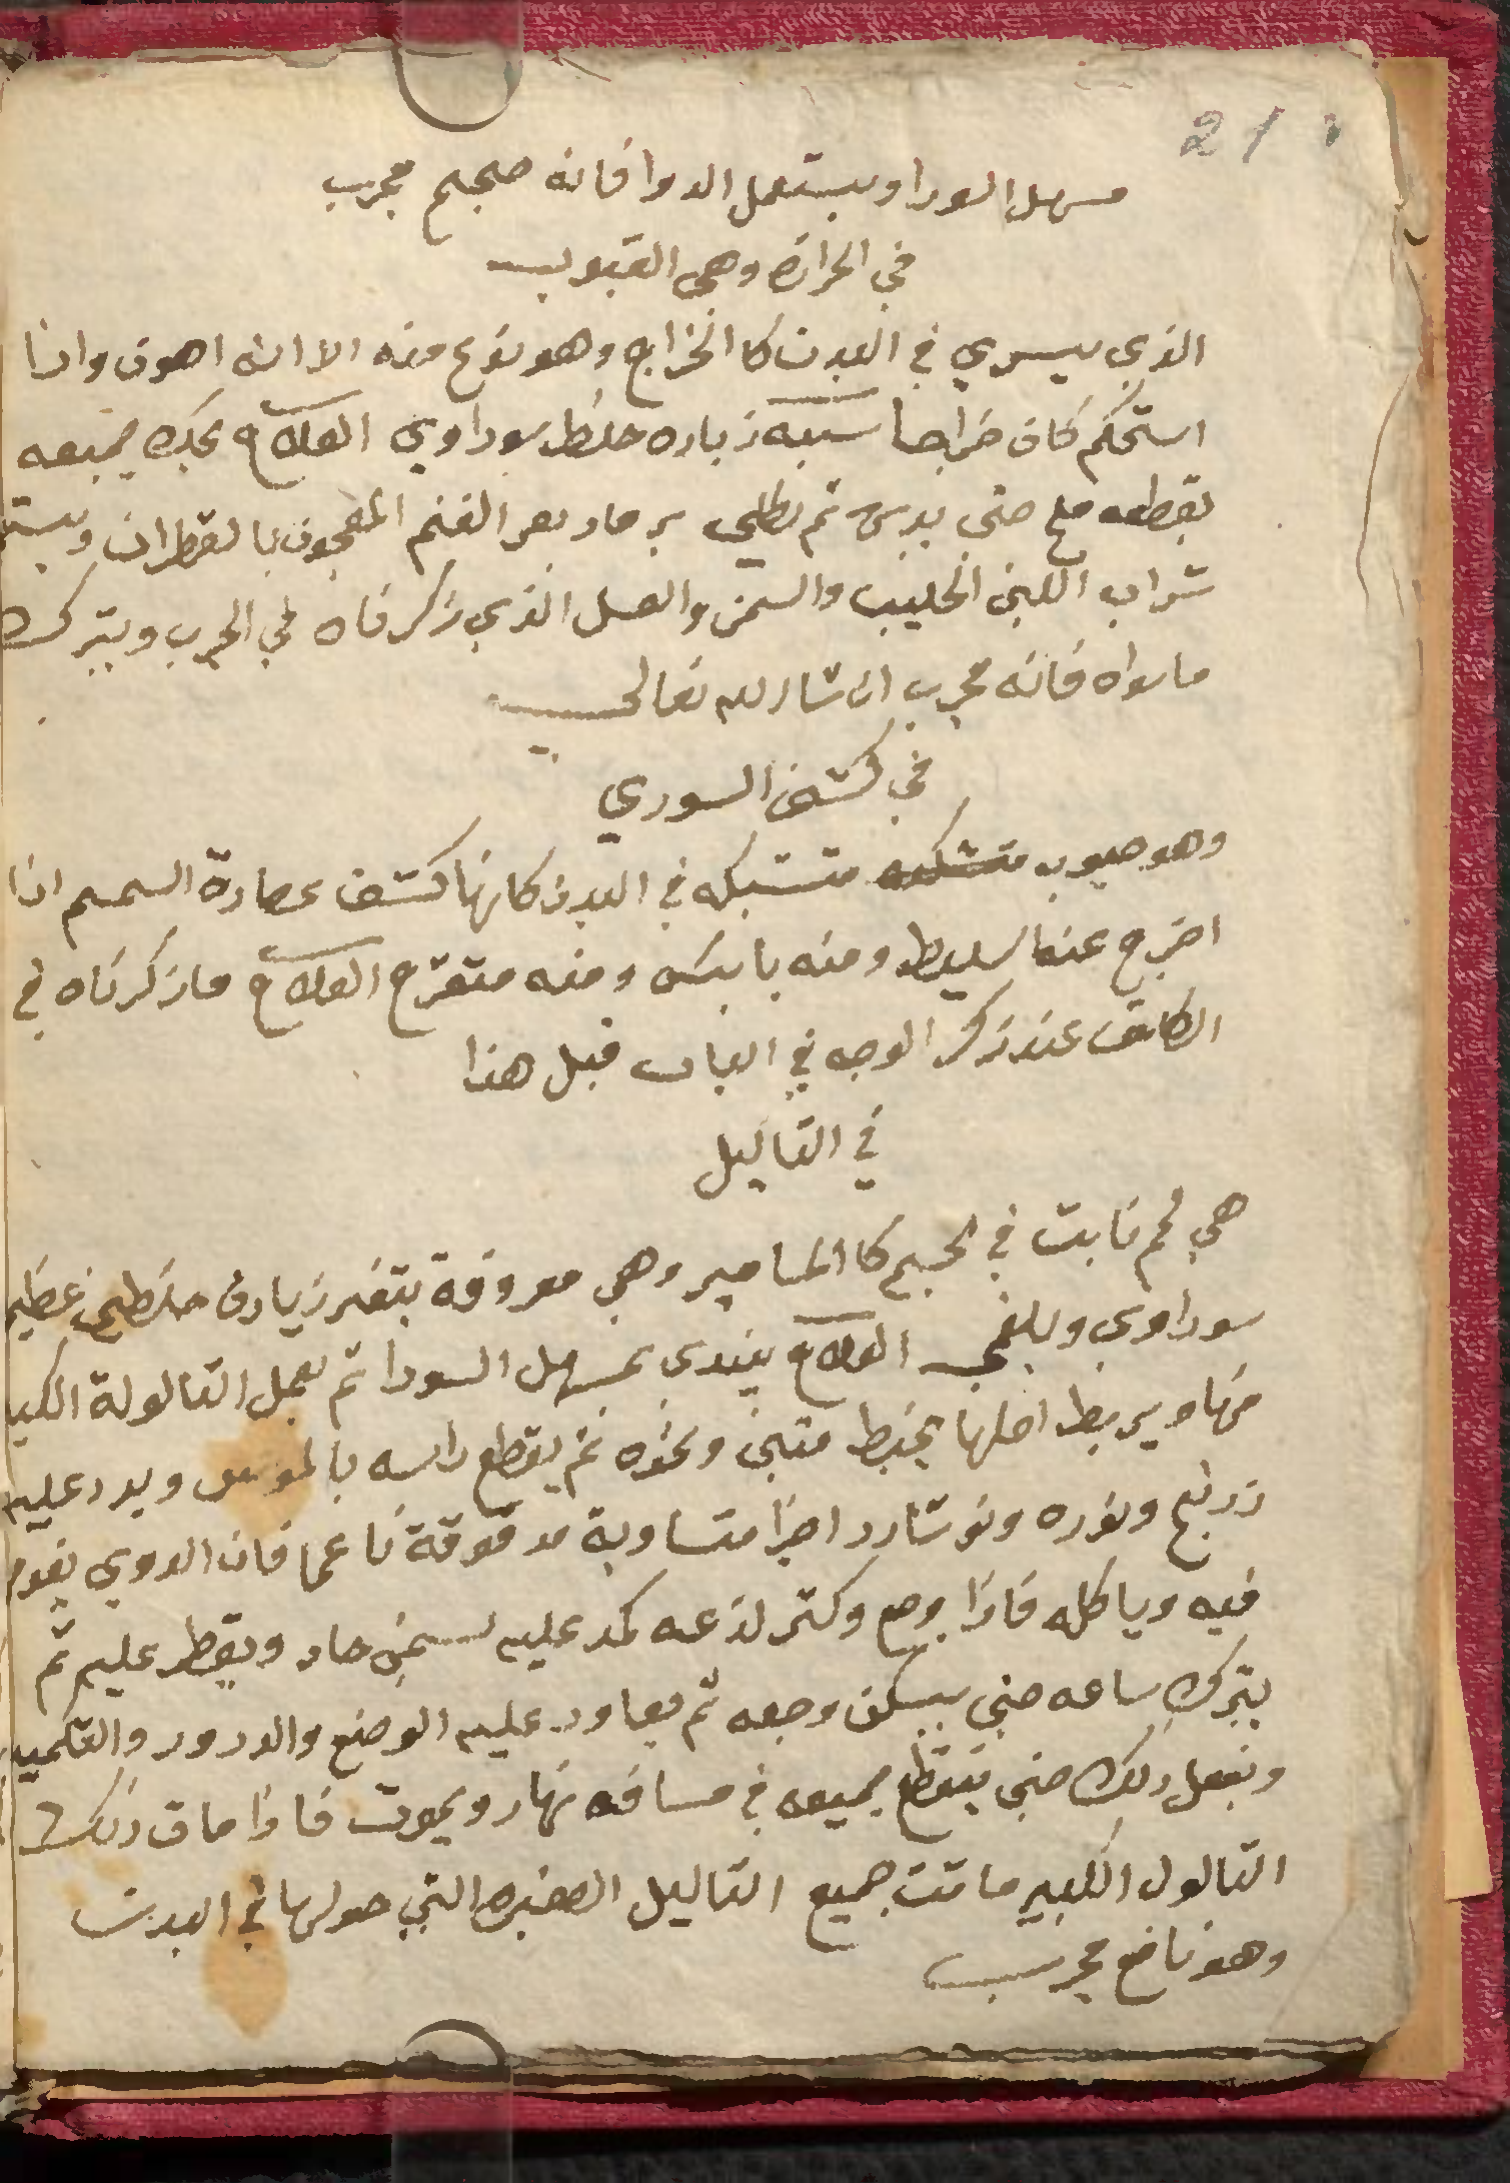 21
مسهل السودا ويستعمل الدوا فانه صحيح مجرب
في الحرازه وهي القوب
الذي يسري في البدن كا الخراج وهو نوع منه الا انه اهون واذا
استحكم كان خراجا سببه زياده خلط سوداوي العلاج يحك جميعه
بقطعه ملح حتى يدمى ثم يطلى برماد بعر الغنم المعجون بالقطران ويستعمل
شراب اللبن الحليب والسمن والعسل الذي ذكرناه في الجرب ويترك
ماسواه فانه مجرب ان شا الله تعالى
في كشف السوري
وهو حبوب متشبكه في البدن كانها كشف عصارة السمسم اذا
اخرج عنها السليط ومنه يابس ومنه متقرح العلاج ماذكرناه في
الكلف عند ذكر الوجه في الباب قبل هذا
في الثاليل
هي لحم نابت في الجسم كا المسامير وهي معروفة بتغير زيادة خلطي غظيم
سوداوي وبلغمي العلاج يبتدى بمسهل السودا ثم يعمل الثالولة الكبيره
منها ويربط اصلها بخيط متين ونحوه ثم يقطع راسه بالموس ويدر عليه
زرنيخ ونوره ونوشادر اجزا متساوية مدقوقة ناعما فان الدوي يغوص
فيه وياكله فاذا وجع وكثر لذعه كمد عليه بسمن حار ويقطر عليه ثم
يترك ساعه حتى يسكن وجعه ثم يعاود عليه الوضع والدرور والتكميد
ويفعل ذلك حتى ينقطع جميعه في مسافه نهار ويموت فاذا مات ذلك
الثالول الكبير ماتت جميع الثاليل الصغيره التي حولها في البدن
وهو نافع مجرب